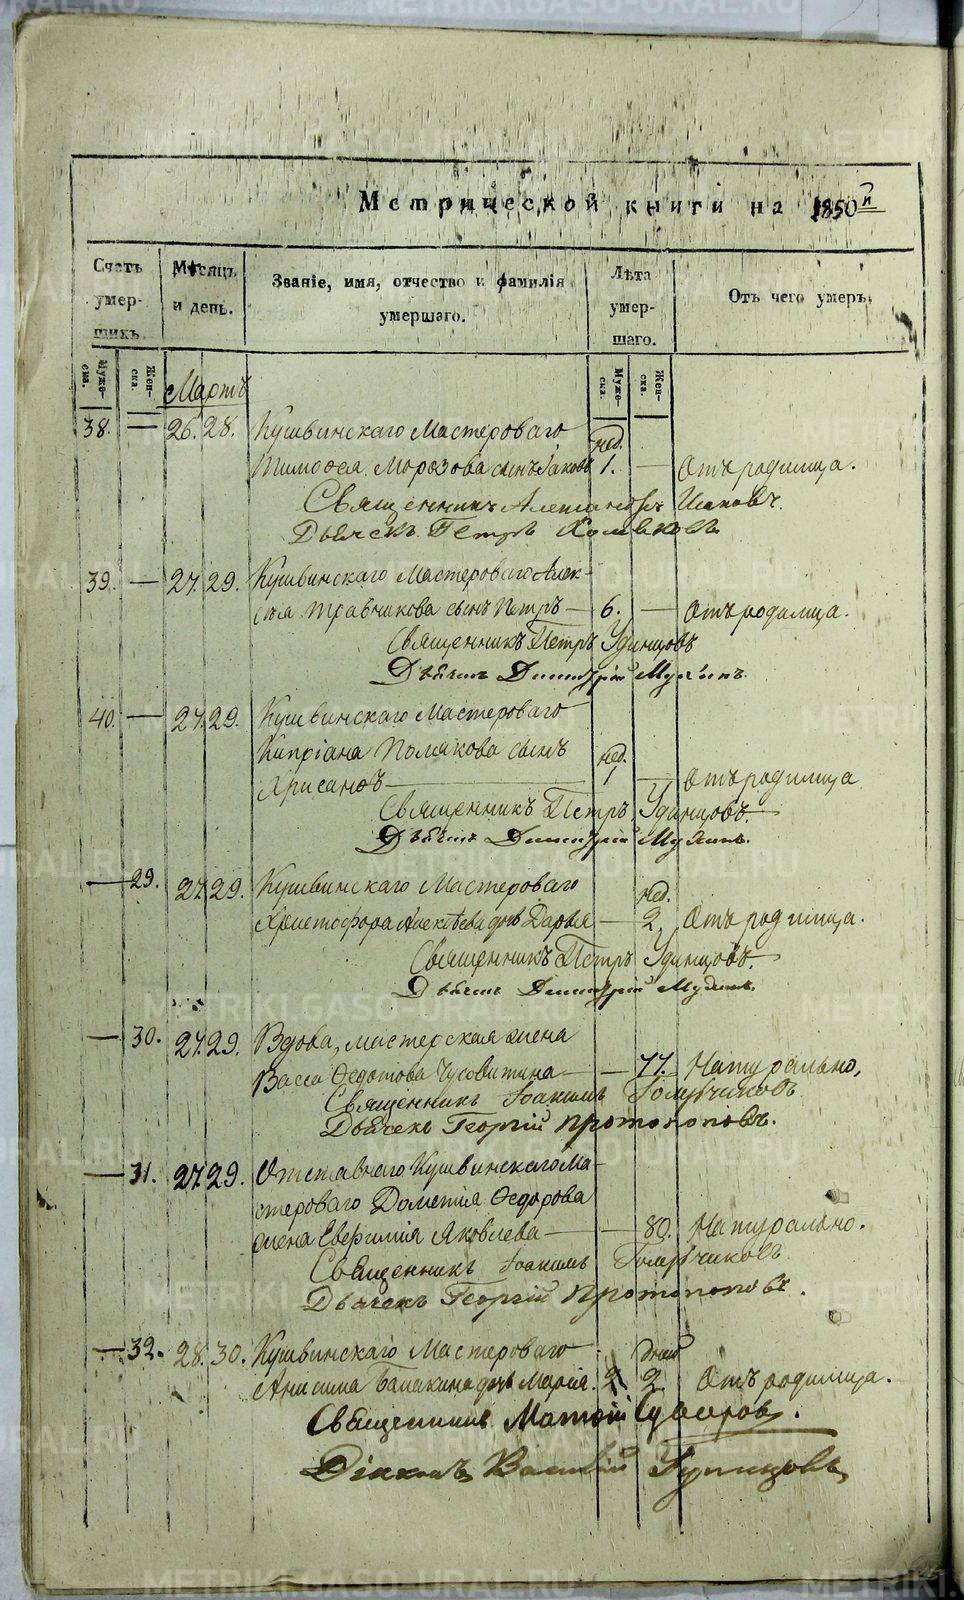 Метрической книги на 1850й
Счетъ умер-шихъ.
Мѣсяцъ и день.
Званіе, имя, отчество и фамилія умершаго.
Лѣта умер-шаго.
Отъ чего умеръ.
Муже-ска.
Жен-ска.
Муже-ска.
Жен-ска.
Мартъ
38. — 26. 28. Кушвинскаго Мастероваго нед.
Тимофея Морозова сынъ Іаковъ 1. — Отъ родимца.
Священникъ Александръ
Дьячекъ Петръ Хомяковъ
39. — 27. 29. Кушвинскаго Мастероваго Алек-
сѣя Травникова сынъ Петръ — 6. — Отъ родимца.
Священникъ Петръ Удинцовъ
Дьячекъ Димитрій
40. — 27. 29. Кушвинскаго Мастероваго
Кипріана Полякова сынъ нед.
Хрисанфъ — 1 — Отъ родимца
Священникъ Петръ Удинцовъ.
Дьячекъ Димитрій
— 29. 27. 29. Кушвинскаго Мастероваго нед.
Христофора дчь Дарья — 2 Отъ родимца.
Священникъ Петръ Удинцовъ.
Дьячекъ Димитрій
— 30. 27. 29. Вдова, мастерская жена
Васса Федотова Чусовитина — — 77. Натурально,
Священникъ Іоакимъ Голубчиковъ
Дьячекъ Георгій Протопоповъ.
— 31. 27. 29. Отставнаго Кушвинскаго Ма-
стероваго Дометія Федорова
жена Евфимія Яковлева — — 80. Натурально.
Священникъ Іоакимъ Голубчиковъ
Дьячекъ Георгій Протопоповъ.
— 32. 28. 30. Кушвинскаго Мастероваго — дней
Анисима дчь Марія. 2 Отъ родимца.
Священникъ Матфій
Діаконъ Василій
METRIKI.GASO-URAL.RU